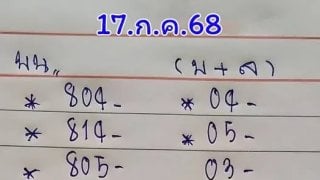 17.ก.ค.68
บน,, (บ+ล)
* 804- * 04-
* 814- * 05-
* 805- 03-